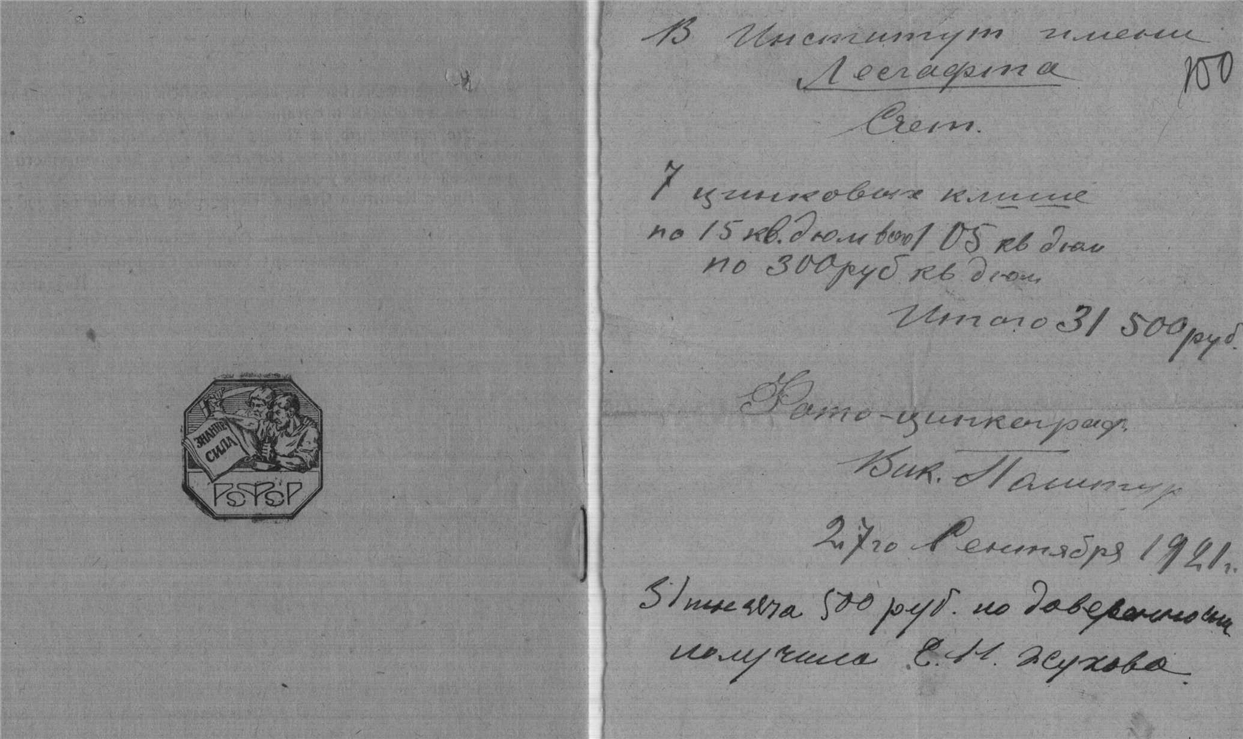 ЗНАНИЕ
СИЛА
РСФСР
В Институт имени
Лесгафта
100
Счет.
7 цинковых клише
по 15 кв. дюм всего 105 кв дюм
по 300 руб кв дюм
Итого 31 500 руб.
Фото-цинкограф.
Вик.
27го Сентября 1921 г.
31 тысяча 500 руб. по доверенности
получила Е. Н. Жукова.